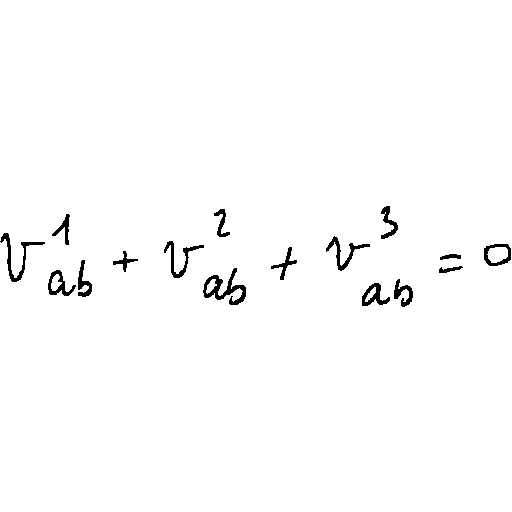 v_{ab}^{1} + v_{ab}^{2} + v_{ab}^{3} = 0